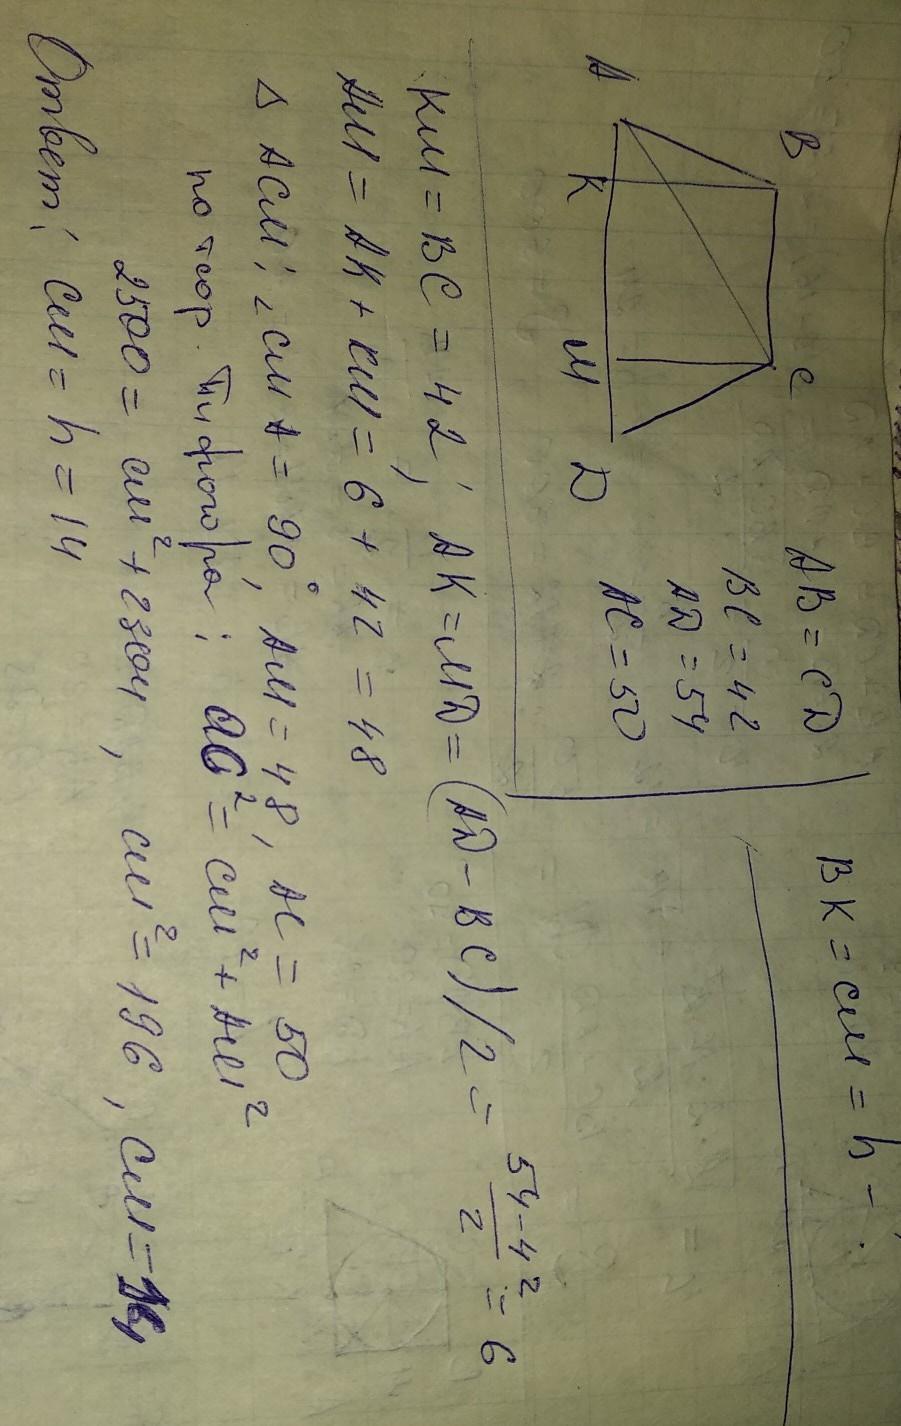 B C
A K M D
AB = CD
BC = 42
AD = 54
AC = 50
BK = CM = h - .
KM = BC = 42, AK = MD = (AD - BC)/2 = 54-42/2 = 6
AM = AK + KM = 6 + 42 = 48
△ ACM; ∠CMA = 90°, AM = 48, AC = 50
по теор. Пифагора: AC² = CM² + AM²
2500 = CM² + 2304, CM² = 196, CM = 14,
Ответ: CM = h = 14